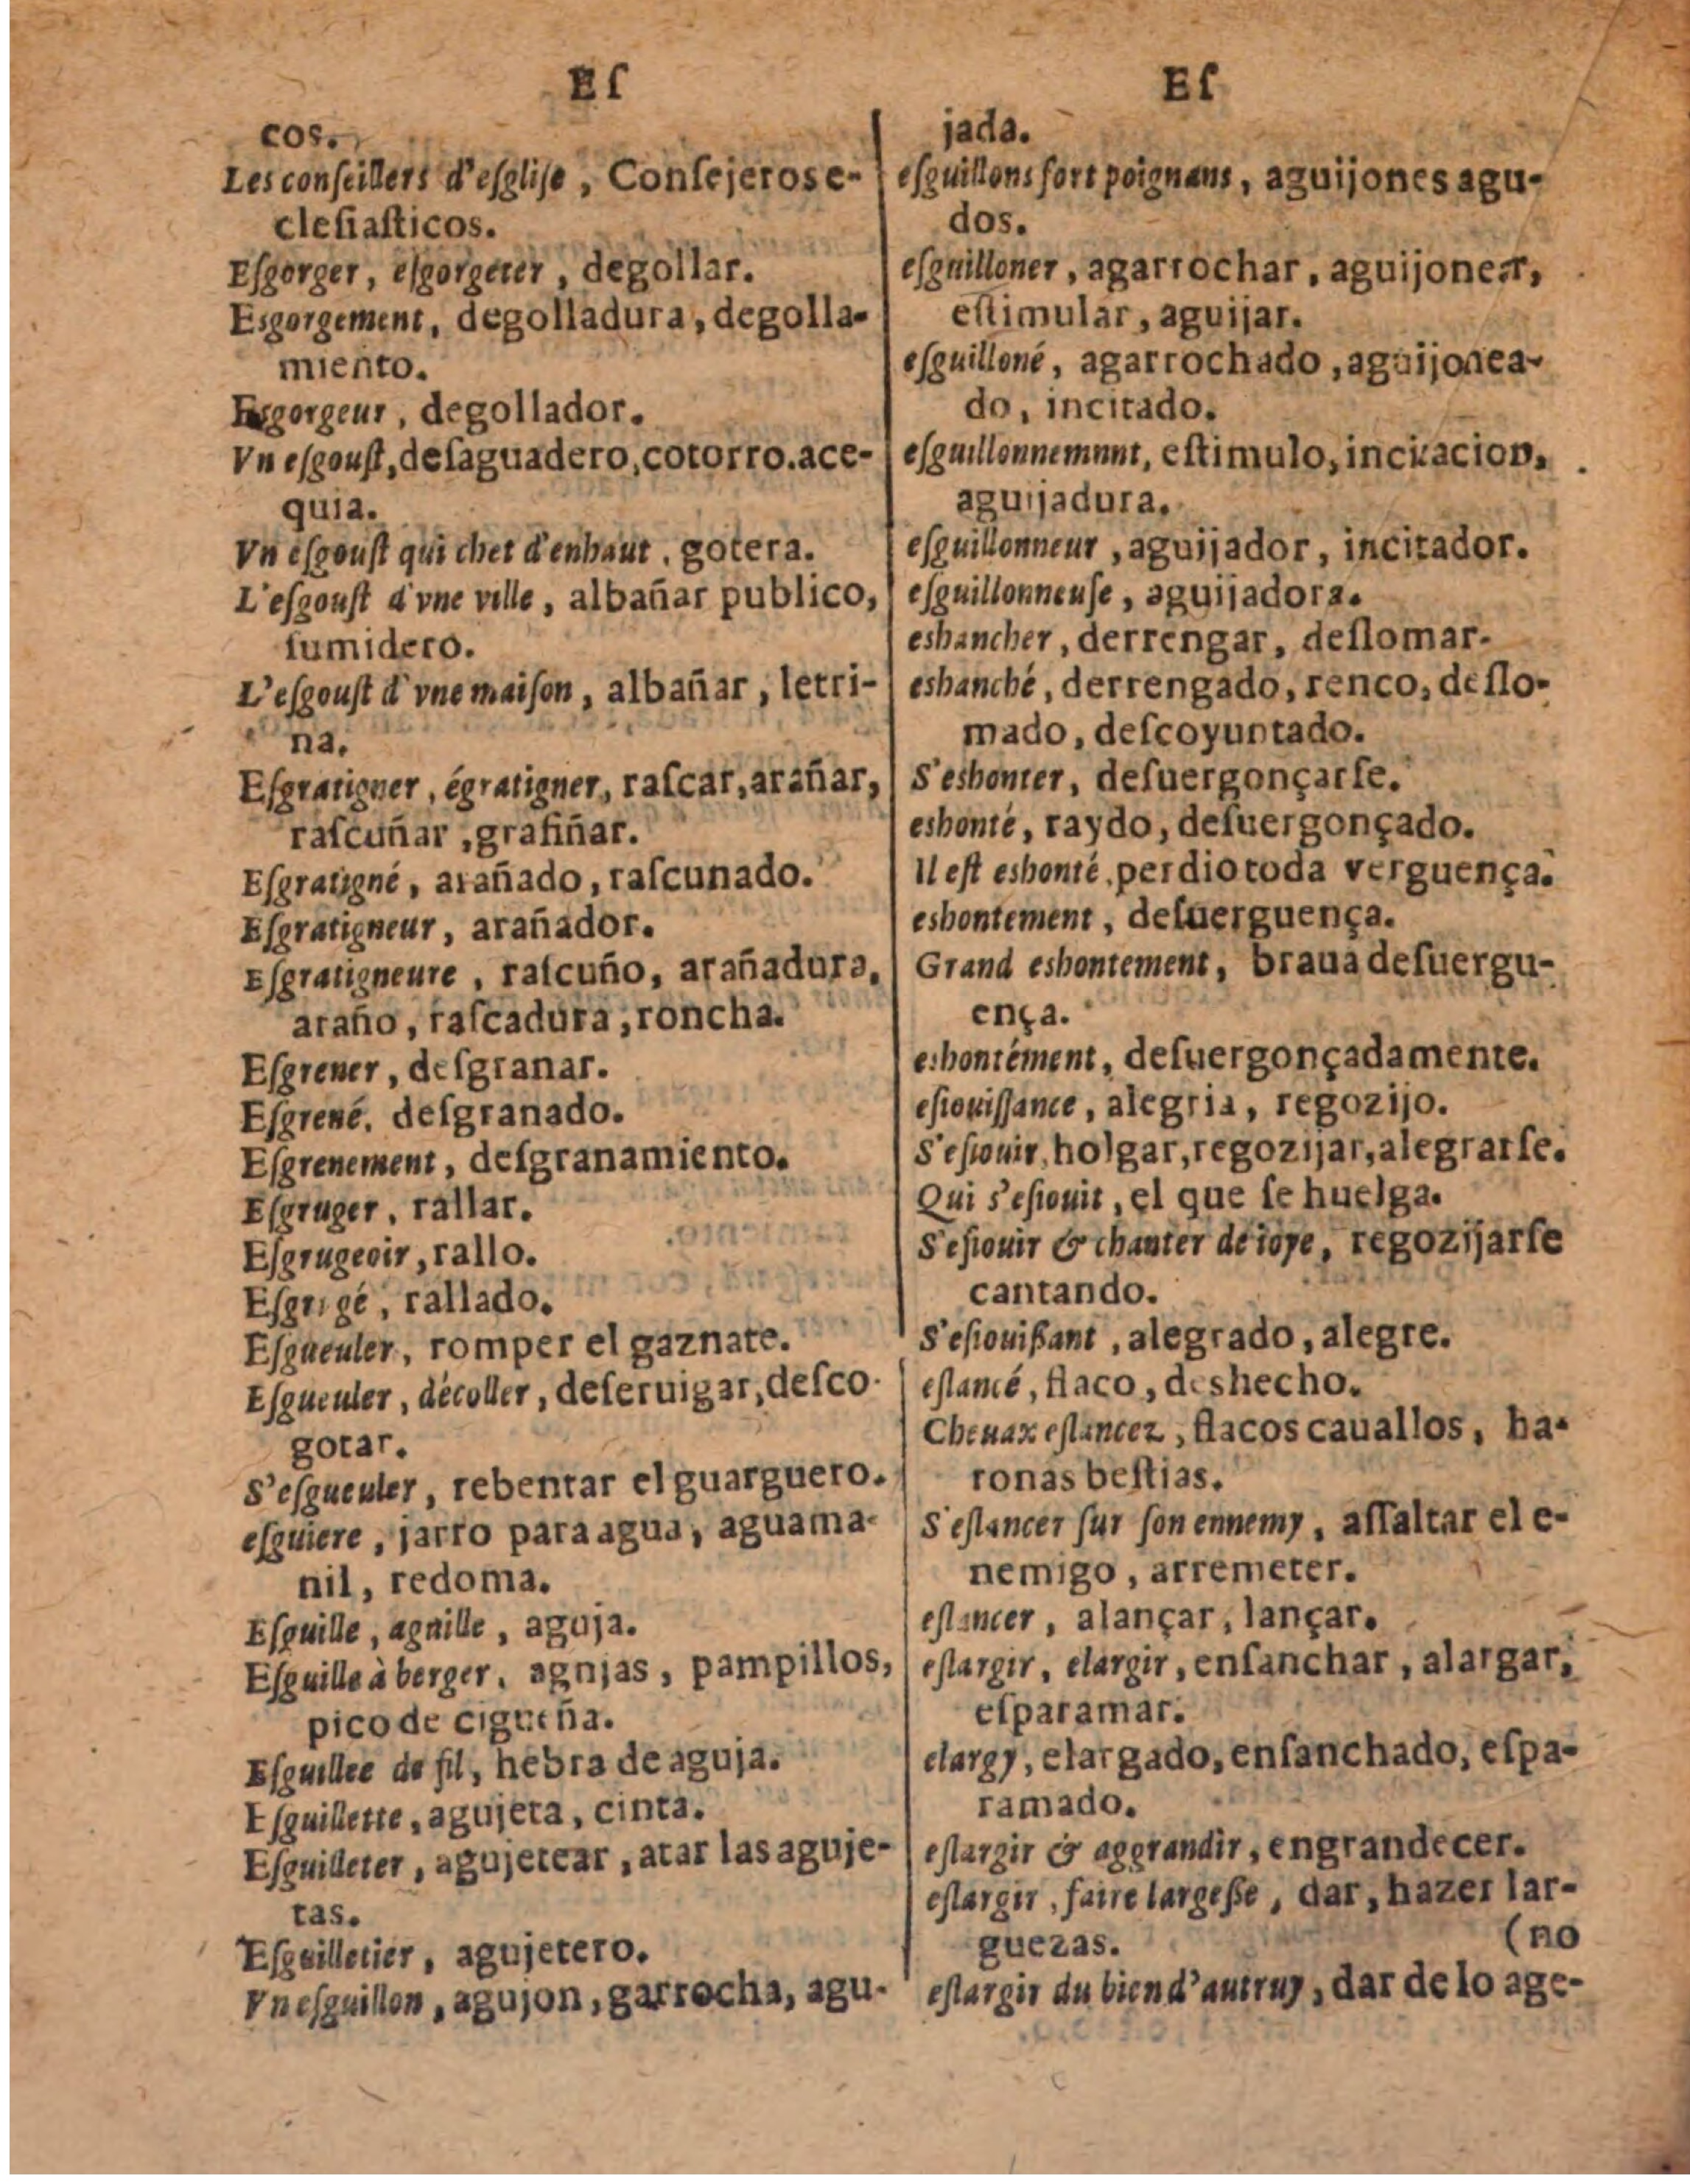 Eſ
cos.
Les conſeillers d'eſgliſe, Conſejeros e-
cleſiaſticos.
Eſgorger, eſgorgeter, degollar.
Esgorgement, degolladura, degolla-
miento.
Esgorgeur, degollador.
Vn eſgouſt, deſaguadero, cotorro. ace-
quia.
Vn eſgouſt qui chet d'enhaut, gotera.
L'eſgouſt d'vne ville, albañar publico,
ſumidero.
L'eſgouſt d'vne maiſon, albañar, letri-
na.
Eſgratigner, égratigner, raſcar, arañar,
raſcuñar, grafiñar.
Eſgratigné, arañado, raſcunado.
Eſgratigneur, arañador.
Eſgratigneure, raſcuño, arañadura,
araño, raſcadura, roncha.
Eſgrener, deſgranar.
Eſgrené, deſgranado.
Eſgrenement, deſgranamiento.
Eſgruger, rallar.
Eſgrugeoir, rallo.
rallado.
Eſgueuler, romper el gaznate.
Eſgueuler, décoller, deſeruigar, deſco-
gotar.
S'eſgueuler, rebentar el guarguero.
eſguiere, jarro para agua, aguama-
nil, redoma.
Eſguille, aguille, aguja.
Eſguille à berger, agnjas, pampillos,
pico de cigueña.
Eſguillee de fil, hebra de aguja.
Eſguillette, agujeta, cinta.
Eſguilleter, agujetear, atar las aguje-
tas.
Eſguilletier, agujetero.
Vn eſguillon, agujon, garrocha, agu-
Eſ
jada.
eſguillons fort poignans, aguijones agu-
dos.
eſguilloner, agarrochar, aguijonear,
eſtimular, aguijar.
eſguilloné, agarrochado, aguijonea-
do, incitado.
eſguillonnemnnt, eſtimulo, incitacion,
aguijadura.
eſguillonneur, aguijador, incitador.
eſguillonneuſe, aguijadora.
eshancher, derrengar, deſlomar.
eshanché, derrengado, renco, deſlo-
mado, deſcoyuntado.
S'eshonter, deſuergonçarſe.
eshonté, raydo, deſuergonçado.
Il eſt eshonté, perdio toda verguença.
eshontement, deſuerguença.
Grand eshontement, braua deſuergu-
ença.
eshontément, deſuergonçadamente.
eſiouiſſance, alegria, regozijo.
S'eſiouir, holgar, regozijar, alegrarſe.
Qui s'eſiouit, el que ſe huelga.
S'eſiouir & chanter de ioye, regozijarſe
cantando.
S'eſiouißant, alegrado, alegre.
eſlancé, flaco, deshecho.
Cheuax eſlancez, flacos cauallos, ha-
ronas beſtias.
S'eſlancer ſur ſon ennemy, aſſaltar el e-
nemigo, arremeter.
eſlancer, alançar, lançar.
eſlargir, elargir, enſanchar, alargar,
eſparamar.
elargy, elargado, enſanchado, eſpa-
ramado.
eſlargir & aggrandir, engrandecer.
eſlargir, faire largeße, dar, hazer lar-
guezas. (no
eſlargir du bien d'autruy, dar de lo age-